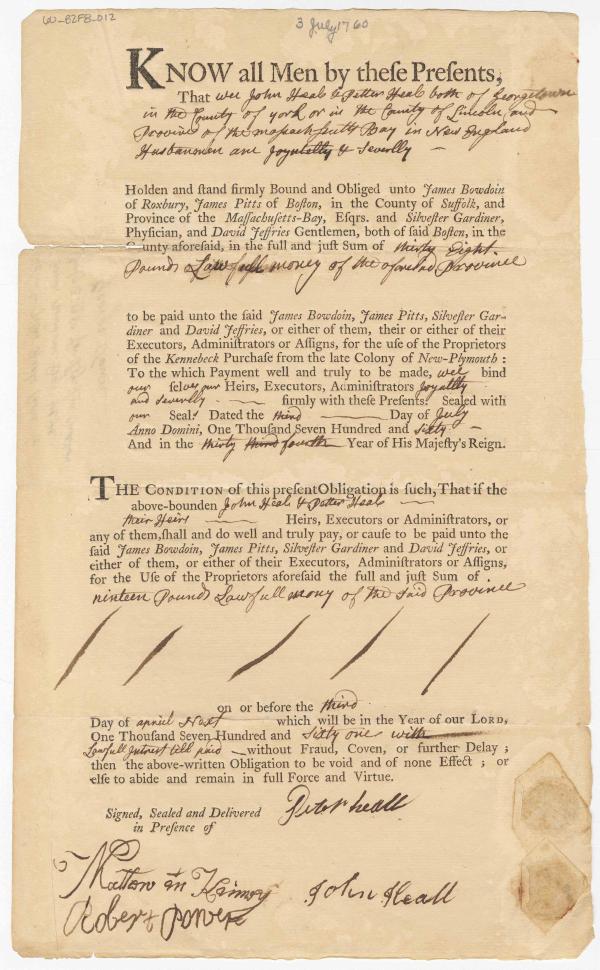 60-82FB-012
3 July 1760
KNOW all Men by theſe Preſents,
That wee John Heal & Petter Heal both of Georgetown
in the County of york or in the County of Lincoln and
Province of the masachsutts Bay in New England
Husbanmen are Joyntelty & Severlly —
Holden and ſtand firmly Bound and Obliged unto James Bowdoin
of Roxbury, James Pitts of Boſton, in the County of Suffolk, and
Province of the Maſſachuſetts-Bay, Eſqrs. and Silveſter Gardiner,
Phyſician, and David Jeffries Gentlemen, both of ſaid Boſton, in the
County aforeſaid, in the full and juſt Sum of thirty Eight
Pounds Lawfull money of the aforesad Province
to be paid unto the ſaid James Bowdoin, James Pitts, Silveſter Gar-
diner and David Jeffries, or either of them, their or either of their
Executors, Adminiſtrators or Aſſigns, for the uſe of the Proprietors
of the Kennebeck Purchaſe from the late Colony of New-Plymouth :
To the which Payment well and truly to be made, wee bind
our ſelves our Heirs, Executors, Adminiſtrators Joyaltty
and severlly — firmly with theſe Preſents. Sealed with
our Seals Dated the third — Day of July
Anno Domini, One Thouſand Seven Hundred and sixty —
And in the thirty third fourth Year of His Majeſty's Reign.
THE CONDITION of this preſent Obligation is ſuch, That if the
above-bounden John Heal & Petter Heal —
their Heirs — Heirs, Executors or Adminiſtrators, or
any of them, ſhall and do well and truly pay, or cauſe to be paid unto the
ſaid James Bowdoin, James Pitts, Silveſter Gardiner and David Jeffries, or
either of them, or either of their Executors, Adminiſtrators or Aſſigns,
for the Uſe of the Proprietors aforeſaid the full and juſt Sum of
ninteen Pounds Lawfull mony of the said Province
on or before the third
Day of april Next which will be in the Year of our LORD,
One Thouſand Seven Hundred and sixty one with
Lawfull Intrest till paid — without Fraud, Coven, or further Delay ;
then the above-written Obligation to be void and of none Effect ; or
elſe to abide and remain in full Force and Virtue.
Signed, Sealed and Delivered
in Preſence of
Peter heall
John Heall
Robert Powere